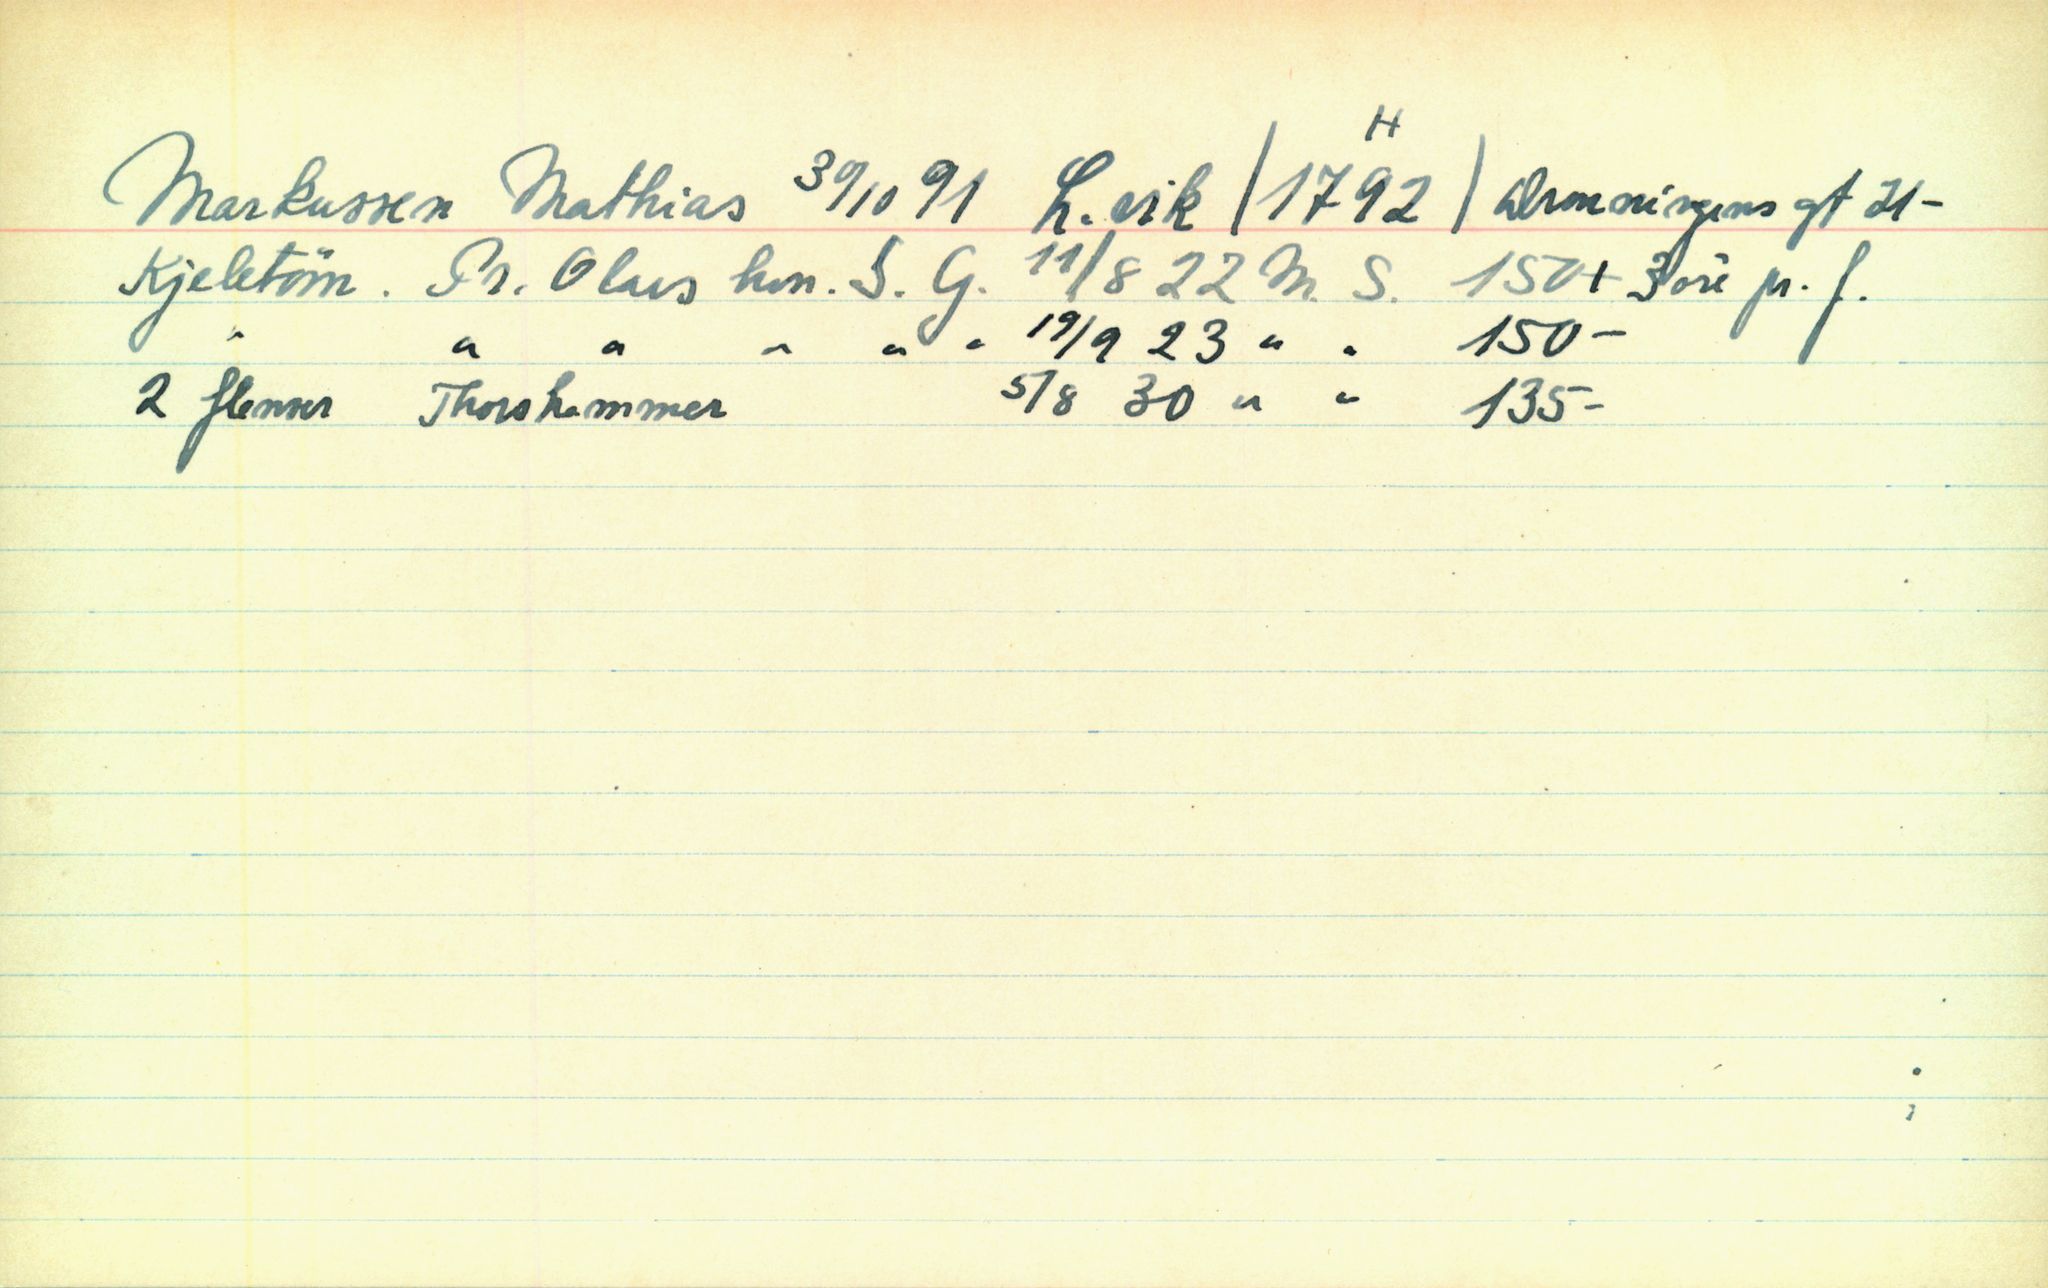 H
Markussen Mathias 30/10 91 L.vik | 1792 | Dronningens gt 21-
Kjeletöm. Pr. Olaus hvn. S. G. 11/8 22 M. S. 150+ 3 öre pr. f.
" " " " " " 19/9 23 " " 150-
2 flenser Thorshammer 5/8 30 " " 135-